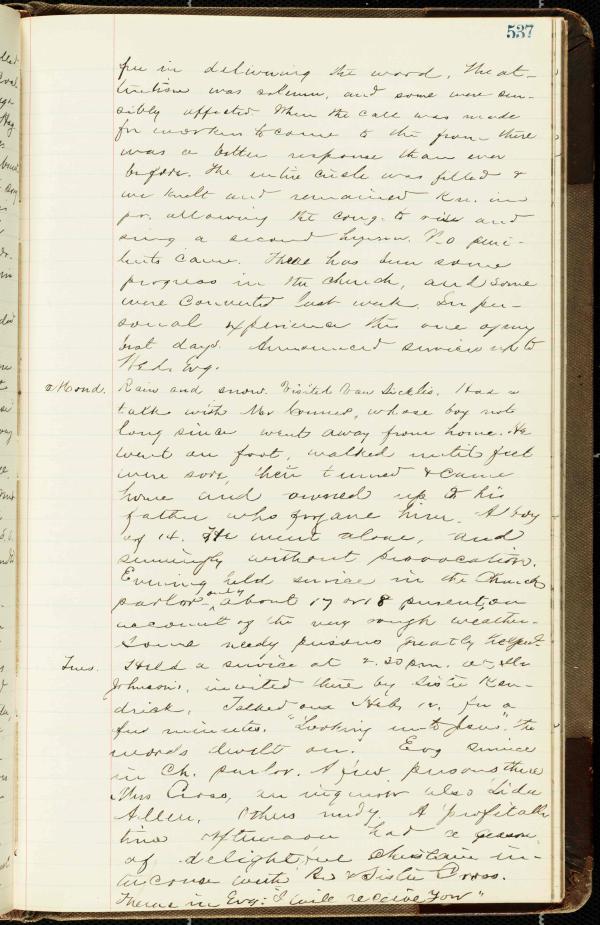 537
free in delivering the word. The at-
tention was solemn, and some were sen-
sibly affected. When the call was made
for workers to come to the front there
was a better response than ever
before. The entire circle was filled &
we knelt and remained kn. in
pr. allowing the cong. to rise and
sing a second hymn. No peni-
tents came. There has been some
progress in the church, and some
were converted last week. In per-
sonal experience this one of my
best days. Announced services up to
Wed. Evg.
Mond. Rain and snow. Visited Van Sickles. Had a
talk with Mr Conner, whose boy not
long since went away from home. He
went on foot, walked until feet
were sore, then turned & came
home and owned up to his
father who forgave him. A boy
of 14. He went alone, and
seemingly without provocation.
Evening held service in the Church
parlor - only about 17 or 18 present, on
account of the very rough weather.
Some needy persons greatly helped.
Tues. Held a service at 2.30 pm. at
Johnson's, invited there by Sister Ken-
drick. Talked on Heb. 12. for a
few minutes. "Looking unto Jesus", the
words dwelt on. Evg service
in Ch. parlor. A few persons there
Mrs Cross, an inquirer also Lida
Allen. Others needy. A profitable
time Afternoon had a season
of delightful Christian in-
tercourse with Br & Sister Cross.
Theme in Evg: "I will receive you"